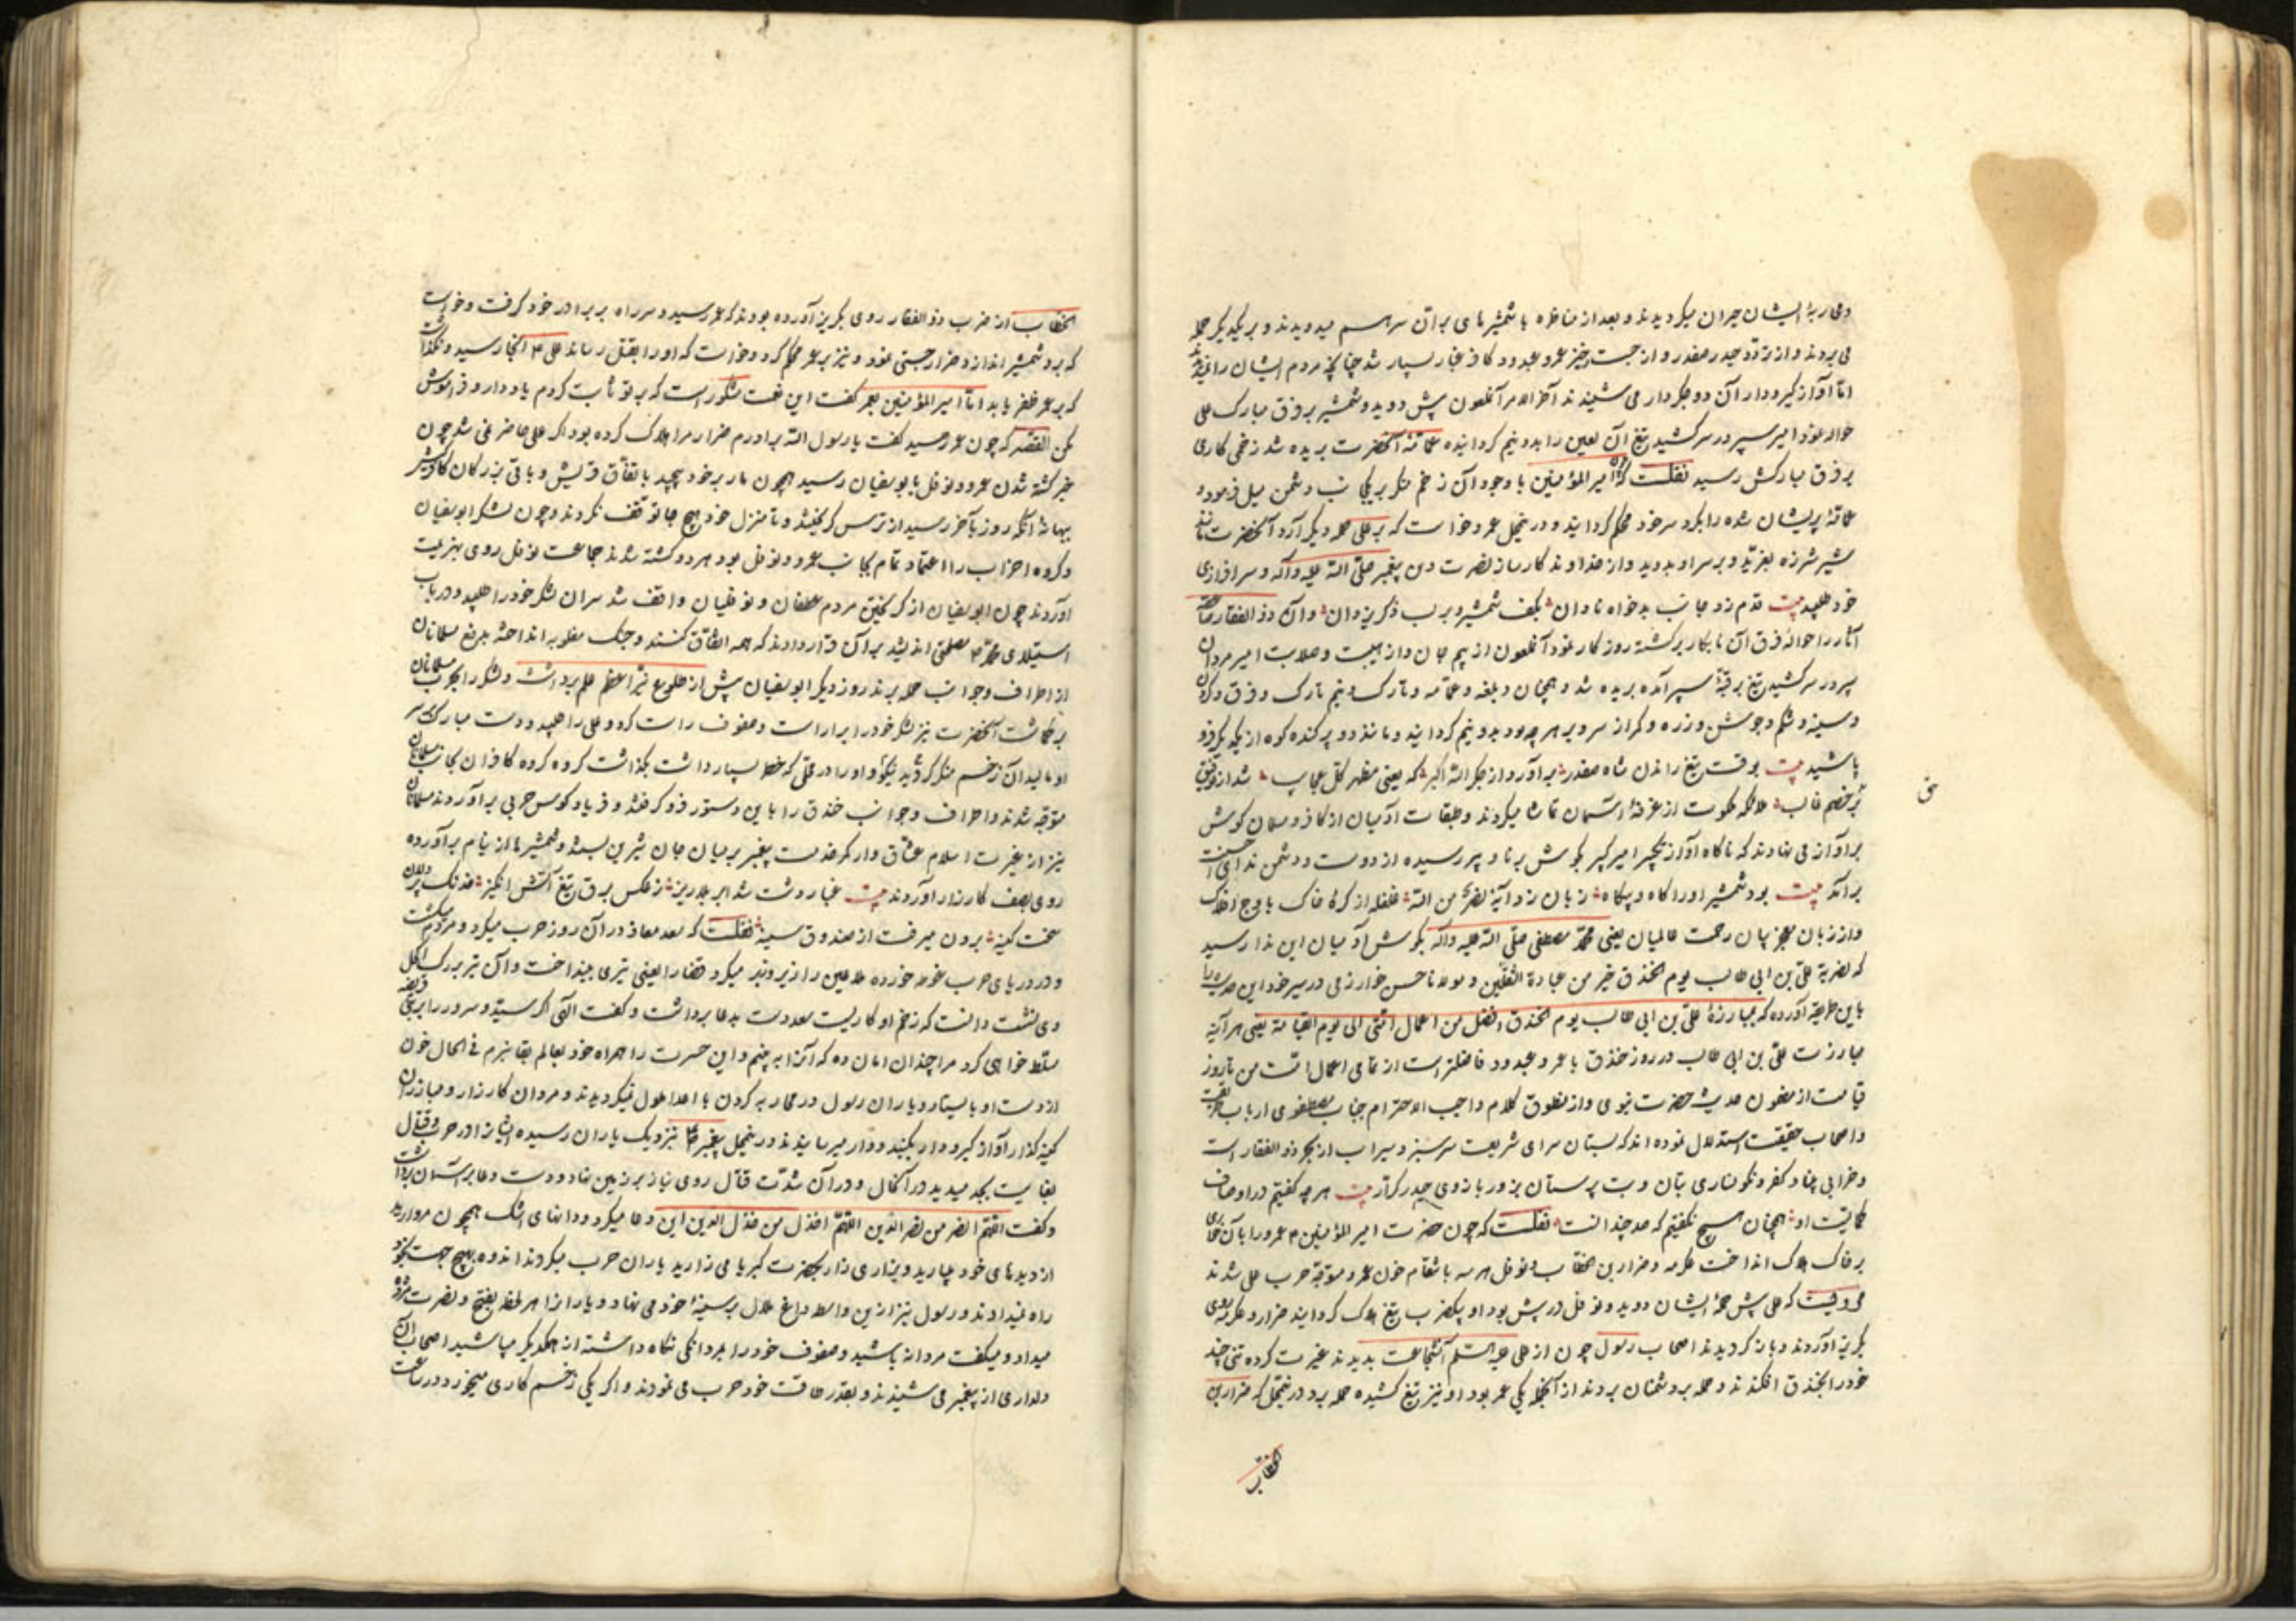 ایشان حیران میکردیدند و بعد از مناظره با شمشیرهای بران بر هم میدویدند و بر یکدیکر حمله
می بردند و از تردد حیدر صفدر و از جست و خیز عمرو عبدود کافر غبار بسیار شد چنانچه مردم ایشان را
اما آواز کیرودار آن دو جکردار می شنیدند آخر الامر آنملعون پیش دوید و شمشیر بر فرق مبارک علی
حواله نمود امیر سپر در سر کشید تیغ آن لعین را بدونیم کردانیده عمامهٔ آنحضرت بریده شد زخمی کاری
بر فرق مبارکش رسید نقلست که امیر المؤمنین با وجود آن زخم منکر بر یکجانب دشمن میل فرمود و
عمامهٔ پریشان شده را بکرد سر خود محکم کردانید و درینمحل عمرو خواست که بر علی حمله دیکر آرد آنحضرت مانند
شیر شرزه بغرید و بر سر او بدوید و از خداوند کارساز نصرت دین پیغمبر صلی الله علیه وآله و سرافرازی
خود طلبید بیت قدم زد جانب بدخواه نادان بکف شمشیر و بر لب ذکر یزدان و آن ذوالفقار
آثار را حوالهٔ فرق آن نابکار برکشته روزکار نمود آنملعون از بیم جان و از هیبت و صلابت امیر مردان
سپر در سر کشید تیغ بر قبهٔ سپر آمده بریده شد و همچنان دبلغه و عمامه و تارک و نیم تارک و فرق و کردن
و سینه و شکم و جوشن و زره و کمر از سر و بر هر چه بود بدونیم کردانید و مانند دو پرکنده کوه از یکدیکر فرو
پاشید بیت بوقت تیغ راندن شاه صفدر برآورد از جکر الله اکبر که یعنی مظهر کل عجایب شد از توفیق
بر خصم غالب ملائکه ملکوت از غرفهٔ آسمان تماشا میکردند و طبقات آدمیان از کافر و مسلمان کوش
بر آواز می نهادند که ناکاه آواز تکبیر امیر کبیر بکوش برنا و پیر رسیده از دوست و دشمن ندای احسنت
برآمد بیت بود شمشیر او را کاه و بیکاه زبان زد آیهٔ نصر من الله غلغله از کرهٔ خاک باوج افلاک
و از زبان معجز بیان رحمت عالمیان یعنی محمد مصطفی صلی الله علیه وآله بکوش آدمیان این ندا رسید
که لضربة علی بن ابی طالب یوم الخندق خیر من عبادة الثقلین و مولانا حسن خوارزمی در سیر خود این حدیث را
باین طریقه آورده که لمبارزة علی بن ابی طالب یوم الخندق افضل من اعمال امتی الی یوم القیامة یعنی هر آینه
مبارزت علی بن ابی طالب در روز خندق با عمرو عبدود فاضلتر است از تمامی اعمال امت من تا روز
قیامت از مضمون حدیث حضرت نبوی و از منطوق کلام واجب الاحترام جناب مصطفوی ارباب
و اصحاب حقیقت استدلال نموده اند که بستان سرای شریعت سرسبز و سیراب از بحر ذوالفقار است
و خرابی بنیاد کفر و نکونساری بتان و بت پرستان بزور بازوی حیدر کرار بیت هر چه کفتیم در اوصاف
کمالیت او همچنان هیچ نکفتیم که صد چندانست نقلست که چون حضرت امیر المؤمنین ع عمرو را بآن خواری
بر خاک هلاک انداخت عکرمه و ضرار بن الخطاب و نوفل هر سه بانتقام خون عمرو متوجه حرب علی شدند
مرویست که علی پیش حملهٔ ایشان دوید و نوفل در پیش بود او بیکضرب تیغ هلاک کردانید ضرار و عکرمه روی
بکریز آوردند و بازکردیدند اصحاب رسول چون از علی علیه السلم آن شجاعت بدیدند غیرت کرده تنی چند
خود را بخندق افکندند و حمله بر دشمنان بردند از آنجمله یکی عمر بود او نیز تیغ کشیده حمله برد درینمحل که ضرار بن
الخطاب
الخطاب از ضرب ذوالفقار روی بکریز آورده بودند که عمر رسید و سر راه بر برادر خود کرفت و خواست
که برو شمشیر اندازد ضرار جستی نمود و نیزه بر عمر محکم کرد و خواست که او را بقتل رساند علی ع آنجا رسید و نکذاشت
که بر عمر ظفر یابد اما امیر المؤمنین بعمر کفت این نعمت مشکور است که بر تو ثابت کردم یاد دار و فراموش
مکن القصه که چون عمر رسید کفت یا رسول الله برادرم ضرار مرا هلاک کرده بود اکر علی حاضر نمی شد چون
خبر کشته شدن عمرو و نوفل بابوسفیان رسید همچون مار بر خود پیچید باتفاق قریش و باقی بزرکان
ببهانهٔ آنکه روز بآخر رسید از ترس کریختند و تا منزل خود هیچ جا توقف نکردند و چون لشکر ابوسفیان
و کروه احزاب را اعتماد تمام بجانب عمرو و نوفل بود هر دو کشته شدند جماعت نوفل روی بهزیمت
آوردند چون ابوسفیان از کریختن مردم غطفان و نوفلیان واقف شد سران لشکر خود را طلبید و در باب
استیلای محمد ص مصلحتی اندیشید بر آن قرار دادند که همه اتفاق کنند و جنک مغلوبه انداخته بدفع مسلمانان
از اطراف و جوانب حمله برند روز دیکر ابوسفیان پیش از طلوع نیر اعظم علم برداشت و لشکر را بحرب مسلمانان
برکماشت آنحضرت نیز لشکر خود را بیاراست و صفوف راست کرد و علی را طلبید و دست مبارک بر سر
او مالید آن زخم منکر کردید نیکو و او را در محلی که خطر بسیار داشت بکذاشت کروه کروه کافران بجانب مسلمانان
متوجه شدند و اطراف و جوانب خندق را باین دستور فرو کرفتند و فریاد کوس حربی برآوردند مسلمانان
نیز از غیرت اسلام عشاق وار کمر خدمت پیغمبر بر میان جان شیرین بسته و شمشیرها از نیام برآورده
روی بصف کارزار آوردند بیت غبار دشت شد ابر بلاریز ز عکس برق تیغ آتش انکیز خدنک
سخت کینه برون میرفت از صندوق سینه نقلست که سعد معاذ در آن روز حرب میکرد و مردم میکشت
و در دریای حرب غوطه خورده ملاعین را زیر و زبر میکرد قضا را لعینی تیری بینداخت و آن تیر برک اکحل
وی نشست دانست که زخم او کاریست سعد دست بدعا برداشت و کفت الهی اکر سید و سرور را بر بنی قریضه
مسلط خواهی کرد مرا چندان امان ده که آنرا به بینم و این حسرت را همراه خود بعالم بقا نبرم فی الحال خون
از دست او بایستاد و یاران رسول در محاربه کردن با اعدا ملول نمیکردیدند و مردان کارزار و مبارزان
کینه کذار آواز کیرودار بکنبد دوار میرسانیدند درینمحل پیغمبر ص نزدیک یاران رسیده ایشانرا در حرب و قتال
بغایت بجد میدید در آنحال و در آن شدت قتال روی نیاز بر زمین نهاد و دست دعا بر آسمان برداشت
و کفت اللهم انصر من نصر الدین اللهم اخذل من خذل الدین این دعا میکرد و دانهای اشک همچون مروارید
از دیدهای خود میبارید و بزاری زار بحضرت کبریا می زارید یاران حرب میکردند اندوه بهیچ جهت بخود
راه نمیدادند و رسول نیز ازین واسطه داغ ملال بر سینهٔ خود می نهاد و یارانرا هر لحظه بفتح و نصرت مژده
میداد و میکفت مردانه باشید و صفوف خود را بمردانکی نکاه داشته از همدیکر مپاشید اصحاب آن
دلداری از پیغمبر می شنیدند و بقدر طاقت خود حرب می نمودند و اکر یکی زخم کاری میخورد در ساعت